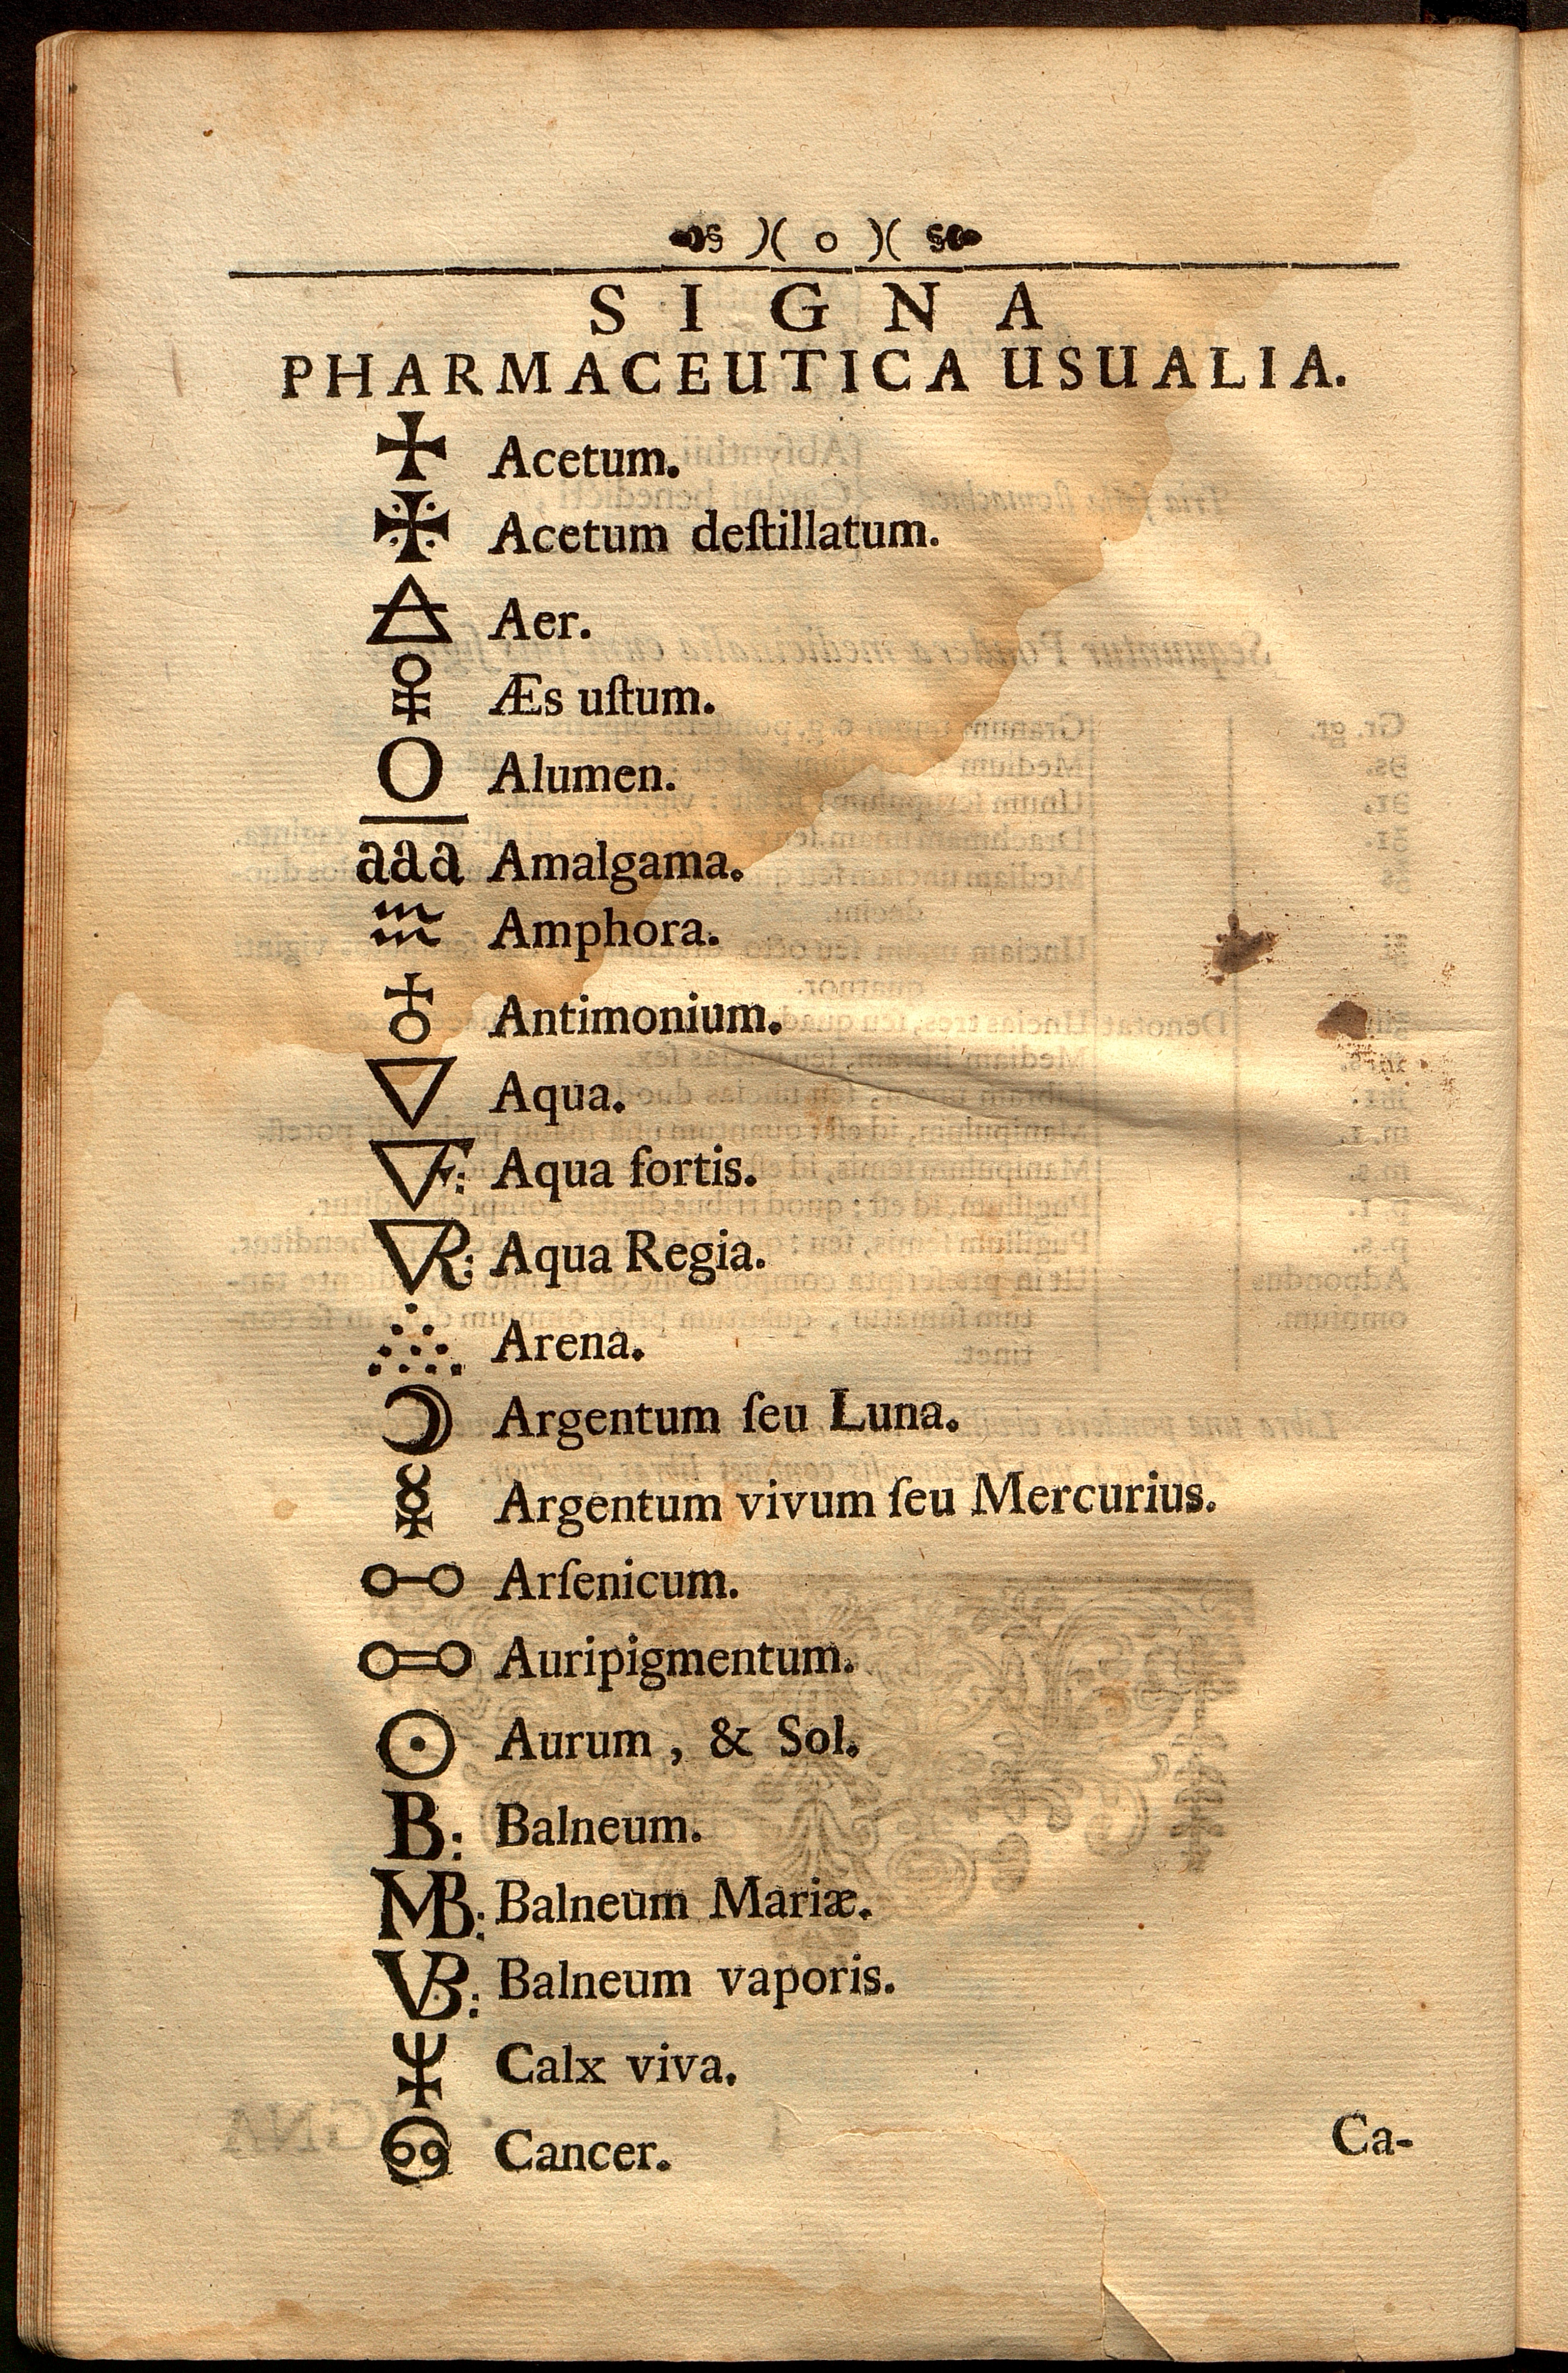 )( o )(
SIGNA
PHARMACEUTICA USUALIA.
Acetum.
Acetum deſtillatum.
Aer.
Æs uſtum.
O Alumen.
aaa Amalgama.
Amphora.
Antimonium.
Aqua.
F: Aqua fortis.
R: Aqua Regia.
Arena.
Argentum ſeu Luna.
Argentum vivum ſeu Mercurius.
Arſenicum.
Auripigmentum.
Aurum, & Sol.
B: Balneum.
MB: Balneum Mariæ.
VB: Balneum vaporis.
Calx viva.
Cancer.
Ca-